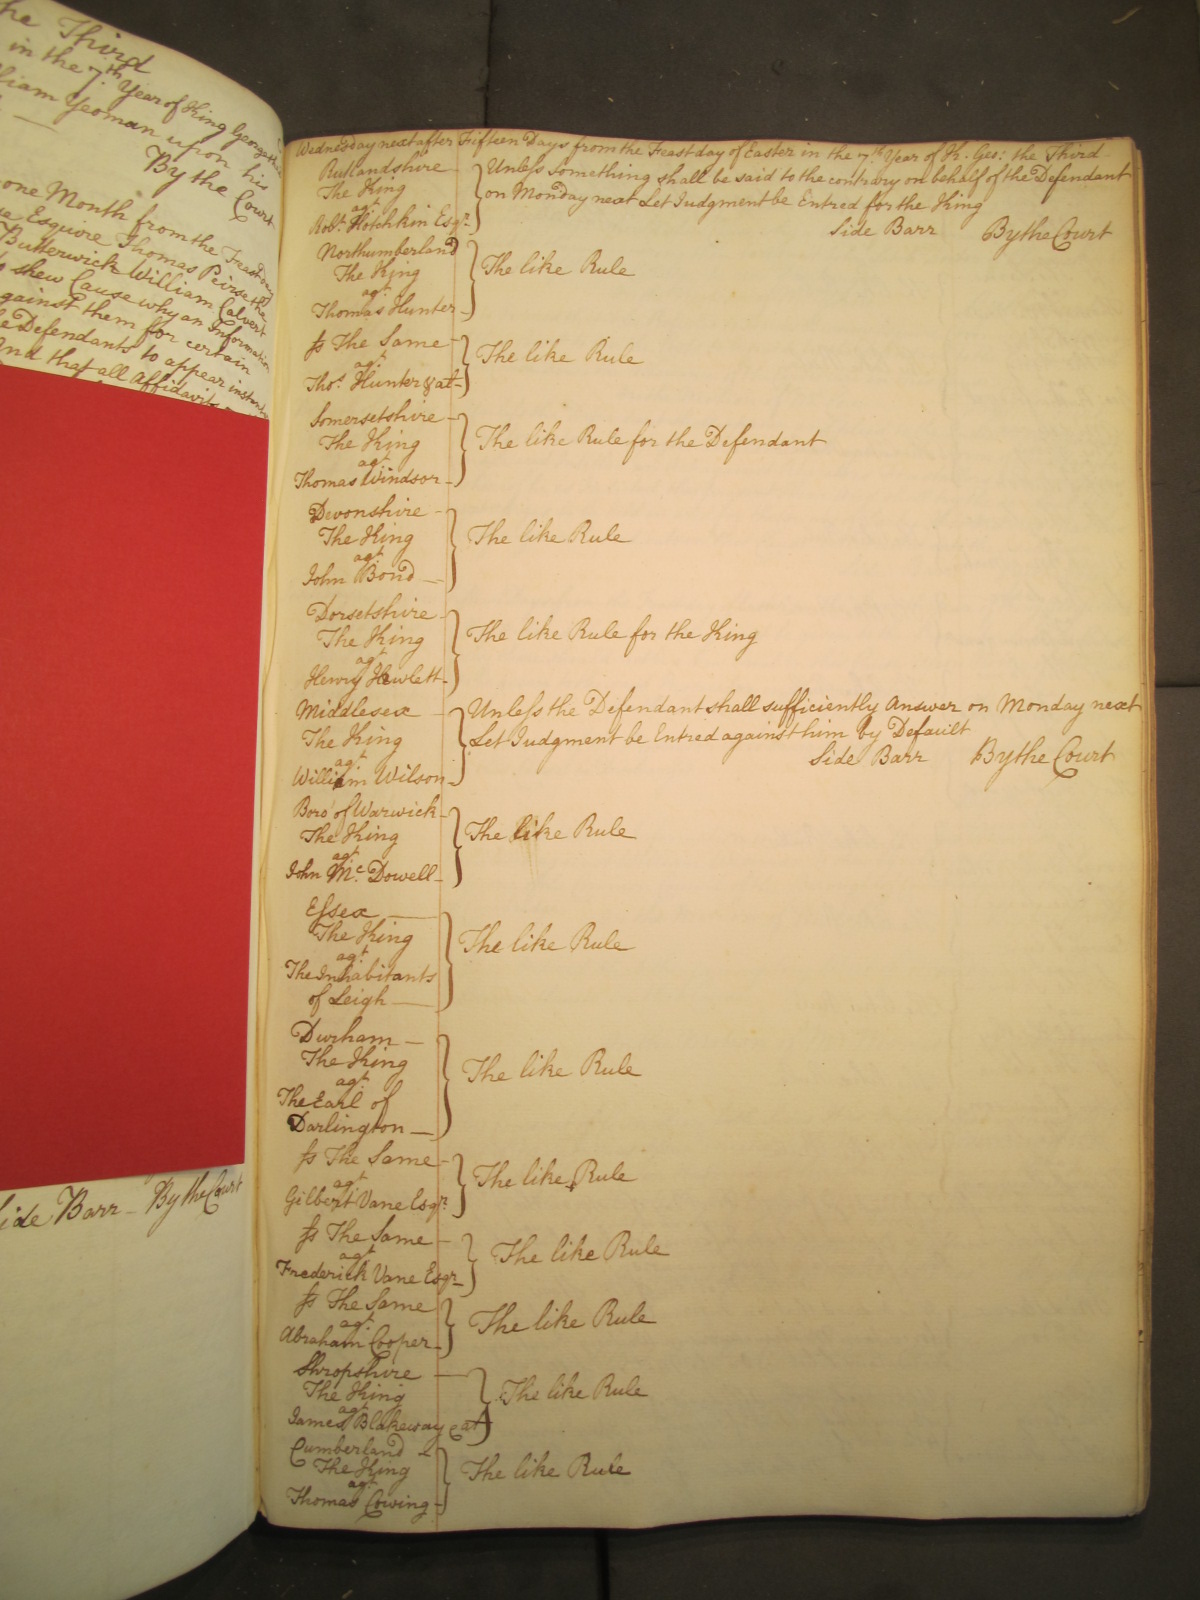 he Third
in the 7th Year of King George the
lliam Yeoman upon his
By the Court
one Month from the Feast day
Esquire Thomas Peirse the
Butterwick William Calvert
to shew Cause why an Information
against them for certain
Defendants to appear instant
And that all Affidavits
Side Barr By the Court
Wednesday next after Fifteen Days from the Feast day of Easter in the 7th Year of K. Geo: the Third
Rutlandshire
The King
agt
Robt Hotchkin Esqr
Unless something shall be said to the contrary on behalf of the Defendant
on Monday next Let Judgment be Entred for the King
Side Barr By the Court
Northumberland
The King
agt
Thomas Hunter
The like Rule
Js The Same
agt
Thos Hunter & at
The like Rule
Somersetshire
The King
agt
Thomas Windsor
The like Rule for the Defendant
Devonshire
The King
agt
John Bond
The like Rule
Dorsetshire
The King
agt
Henry Hewlett
The like Rule for the King
Middlesex
The King
agt
William Wilson
Unless the Defendant shall sufficiently Answer on Monday next
Let Judgment be Entred against him by Default
Side Barr By the Court
Boro' of Warwick
The King
agt
John Mc Dowell
The like Rule
Essex
The King
agt
The Inhabitants
of Leigh
The like Rule
Durham
The King
agt
The Earl of
Darlington
The like Rule
Js The Same
agt
Gilbert Vane Esqr
The like Rule
Js The Same
agt
Frederick Vane Esqr
The like Rule
Js The Same
agt
Abraham Cooper
The like Rule
Shropshire
The King
agt
James Blakeway & at
The like Rule
Cumberland
The King
agt
Thomas Cowing
The like Rule